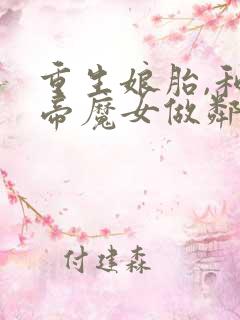 重生娘胎,和
帝魔女做鄰
付建森